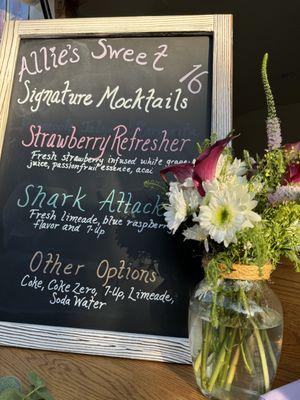 Allie's Sweet 16
Signature Mocktails
Strawberry Refresher
Fresh strawberry infused white grape
juice, passionfruit essence, acai
Shark Attack
Fresh limeade, blue raspberry
flavor and 7-up
Other Options
Coke, Coke Zero, 7-Up, Limeade,
Soda Water